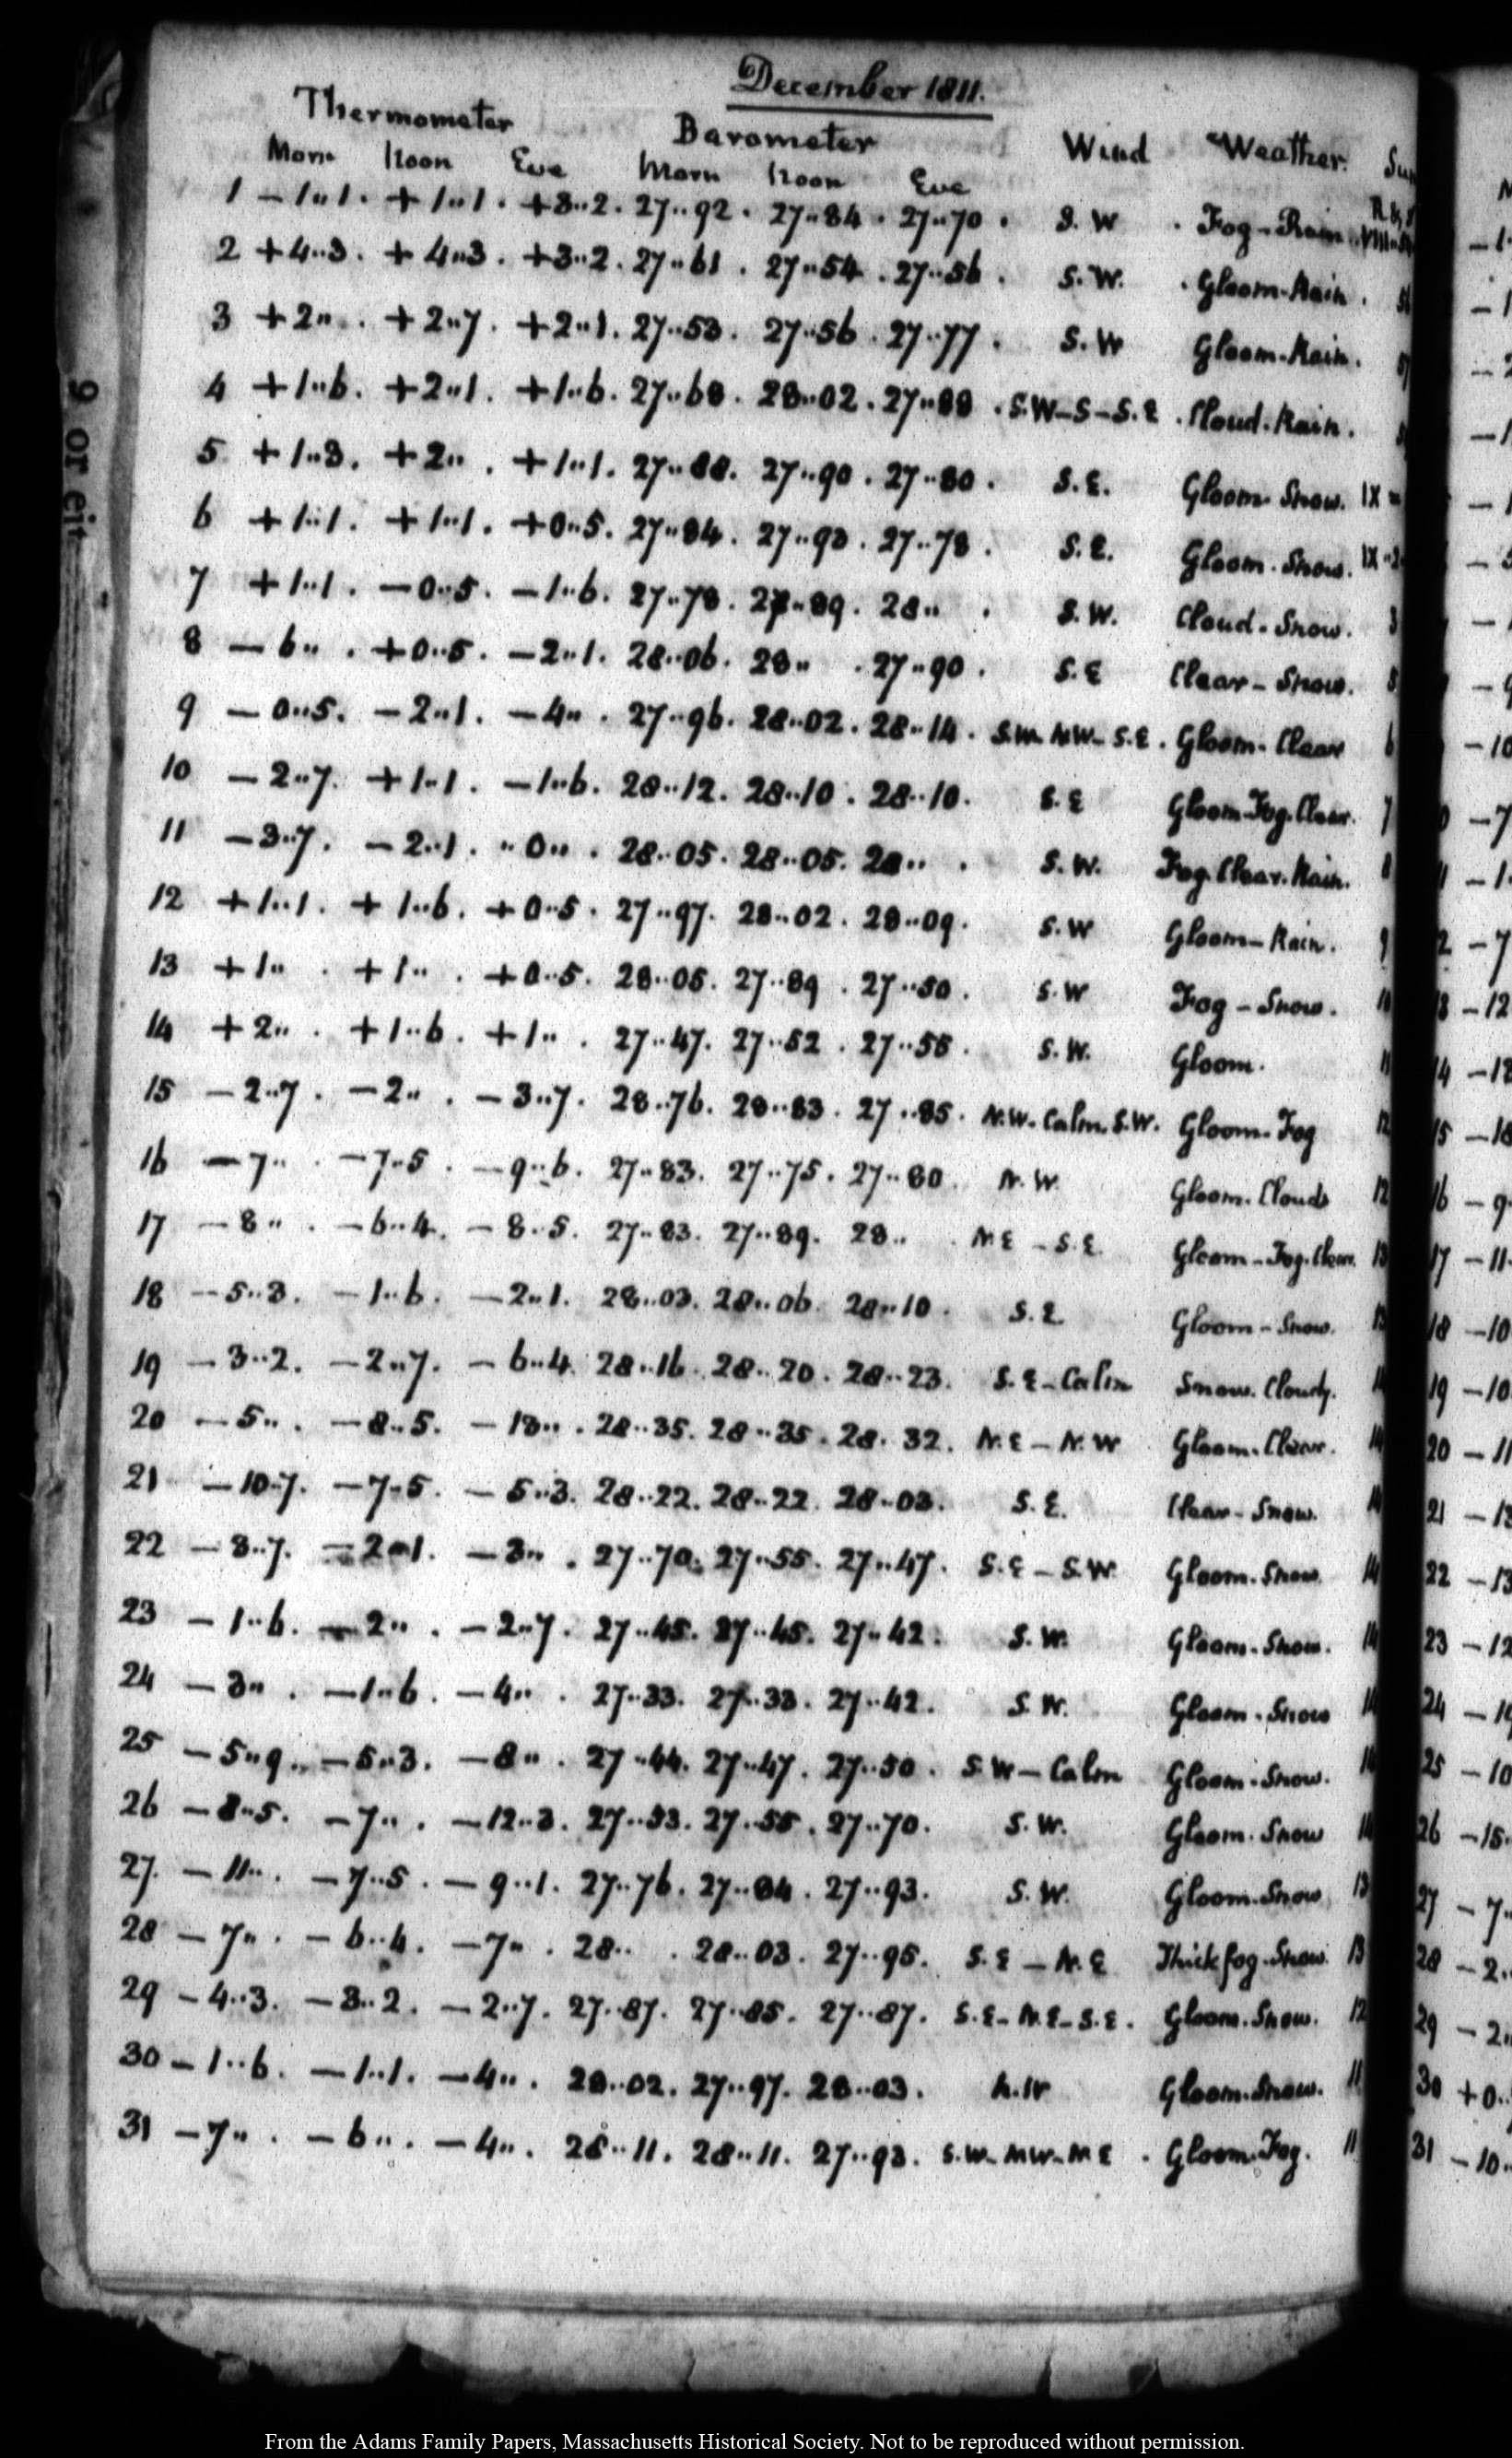 December 1811.
Thermometer Barometer Wind Weather. Sun
Morn Noon Eve Morn Noon Eve
1 – 1"1. + 1"1. +3"2. 27"92. 27"84. 27"70. S.W. Fog – Rain.
2 +4"3. + 4"3. +3"2. 27"61. 27"54. 27"56. S.W. Gloom-Rain.
3 +2". +2"7. +2"1. 27"53. 27"56. 27"77. S.W Gloom-Rain.
4 +1"6. +2"1. +1"6. 27"68. 28"02. 27"88. S.W–S–S.E. Cloud-Rain.
5 +1"3. +2". +1"1. 27"88. 27"90. 27"80. S.E. Gloom-Snow. IX
6 +1"1. +1"1. +0"5. 27"84. 27"93. 27"78. S.E. Gloom-Snow. IX"2
7 +1"1. –0"5. –1"6. 27"78. 27"89. 28". S.W. Cloud-Snow. 3
8 –6". +0"5. –2"1. 28"06. 28". 27"90. S.E Clear–Snow.
9 –0"5. –2"1. –4". 27"96. 28"02. 28"14. S.W. NW–S.E. Gloom-Clear 6
10 –2"7. +1"1. –1"6. 28"12. 28"10. 28"10. S.E Gloom-Fog-Clear. 7
11 –3"7. –2"1. "0". 28"05. 28"05. 28". S.W. Fog.Clear.Rain. 8
12 +1"1. +1"6. +0"5. 27"97. 28"02. 28"09. S.W Gloom–Rain. 9
13 +1". +1". +0"5. 28"05. 27"89. 27"50. S.W Fog–Snow. 10
14 +2". +1"6. +1". 27"47. 27"52. 27"55. S.W. Gloom. 11
15 –2"7. –2". –3"7. 28"76. 28"83. 27"85. N.W. Calm. S.W. Gloom-Fog 12
16 –7". –7"5. –9"6. 27"83. 27"75. 27"80. N.W. Gloom. Clouds 12
17 –8". –6"4. –8"5. 27"83. 27"89. 28". N E – S.E. Gloom–Fog.Clear. 13
18 –5"3. –1"6. –2"1. 28"03. 28"06. 28"10. S.E. Gloom–Snow. 13
19 –3"2. –2"7. –6"4. 28"16. 28"20. 28"23. S.E–Calm Snow. Cloudy. 14
20 –5". –8"5. –13". 28"35. 28"35. 28. 32. N.E–N.W Gloom.Clear. 14
21 –10"7. –7"5. –5"3. 28"22. 28"22. 28"03. S.E. Clear–Snow. 14
22 –3"7. –2"1. –3". 27"70. 27"55. 27"47. S.E–S.W. Gloom.Snow. 14
23 –1"6. –2". –2"7. 27"45. 27"45. 27"42. S.W. Gloom.Snow. 14
24 –3". –1"6. –4". 27"33. 27"33. 27"42. S.W. Gloom.Snow 14
25 –5"9. –5"3. –8". 27"44. 27"47. 27"50. S.W–Calm Gloom.Snow. 14
26 –8"5. –7". –12"3. 27"53. 27"55. 27"70. S.W. Gloom.Snow 14
27. –11". –7"5. –9"1. 27"76. 27"84. 27"93. S.W. Gloom.Snow 13
28 –7". –6"4. –7". 28". 28"03. 27"95. S.E–N.E Thick fog.Snow. 13
29 –4"3. –3"2. –2"7. 27"87. 27"85. 27"87. S.E–N.E–S.E. Gloom.Snow. 12
30 –1"6. –1"1. –4". 28"02. 27"97. 28"03. N.W Gloom.Snow. 11
31 –7". –6". –4". 28"11. 28"11. 27"93. S.W–NW–N E. Gloom.Fog. 11
From the Adams Family Papers, Massachusetts Historical Society. Not to be reproduced without permission.